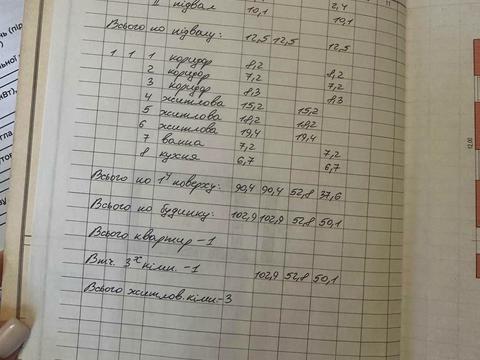 II підвал 10,1 2,4
10,1
Всього по підвалу: 12,5 12,5 12,5
1 1 1 коридор 8,2 8,2
2 коридор 7,2 7,2
3 коридор 8,3 8,3
4 житлова 15,2 15,2
5 житлова 18,2 18,2
6 житлова 19,4 19,4
7 ванна 7,2 7,2
8 кухня 6,7 6,7
Всього по 1у поверху: 90,4 90,4 52,8 37,6
Всього по будинку: 102,9 102,9 52,8 50,1
Всього квартир - 1
В т.ч. 3х кімн. - 1 102,9 52,8 50,1
Всього житлов. кімн - 3
12,00